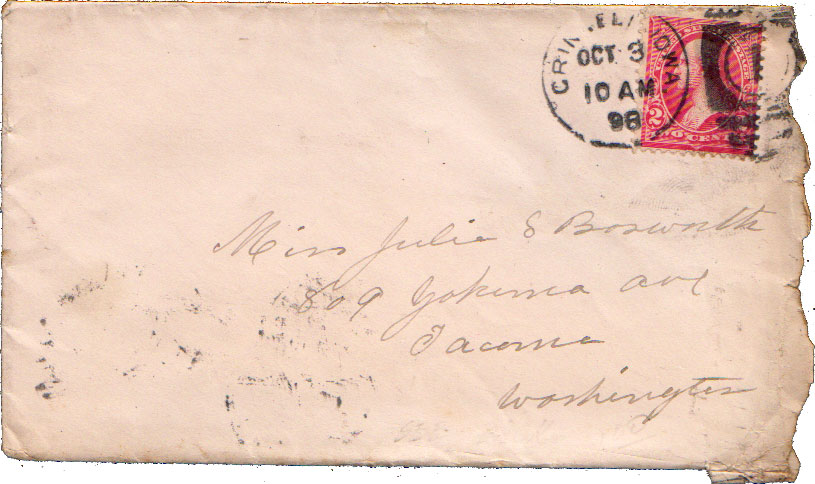 GRINNELL, IOWA
OCT 3
10 AM
98
2
TWO CENTS
Miss Julia S Bosworth
809 Yakima ave
Tacoma
Washington